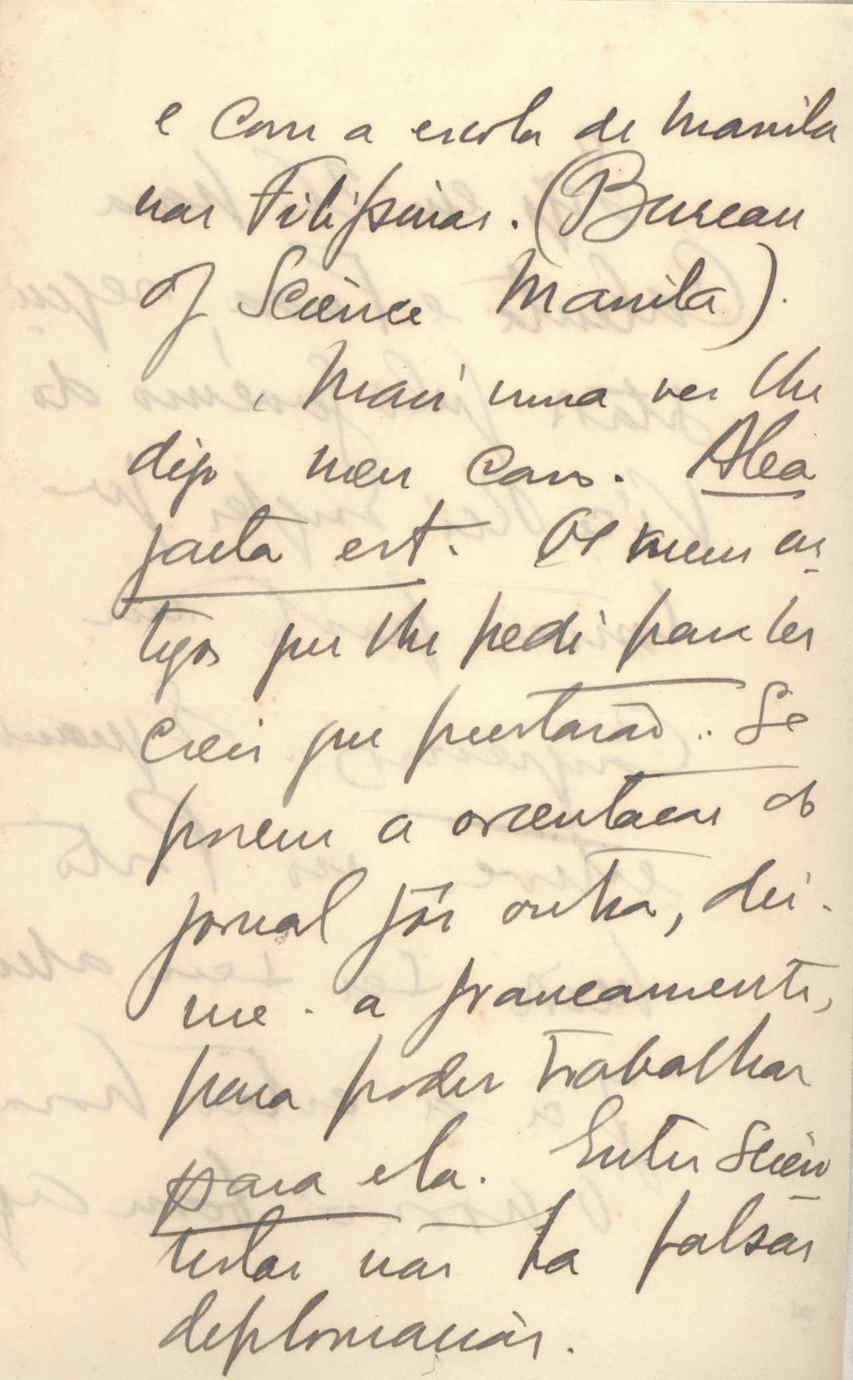 e com a escola de Manila
nas Filipinas. (Bureau
of Science Manila).
Mais uma vez lhe
digo meu caro. Alea
jacta est. Os meus ar-
tigos que lhe pedi para ler
creio que prestarão.. Se
porem a orientação do
jornal fôr outra, dei-
me-a francamente,
para poder trabalhar
para ela. Entre scien
tistas não ha falsas
diplomacias.